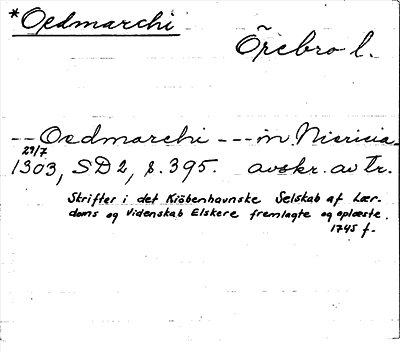 *Oedmarchi
Örebro l.
-- Oedmarchi --- in. Niericia
29/7
1303, SD 2, s. 395. avskr. av tr.
Skrifter i det Kiöbenhavnske Selskab af Lær-
doms og Videnskab Elskere fremlagte og oplæste.
1745 f.